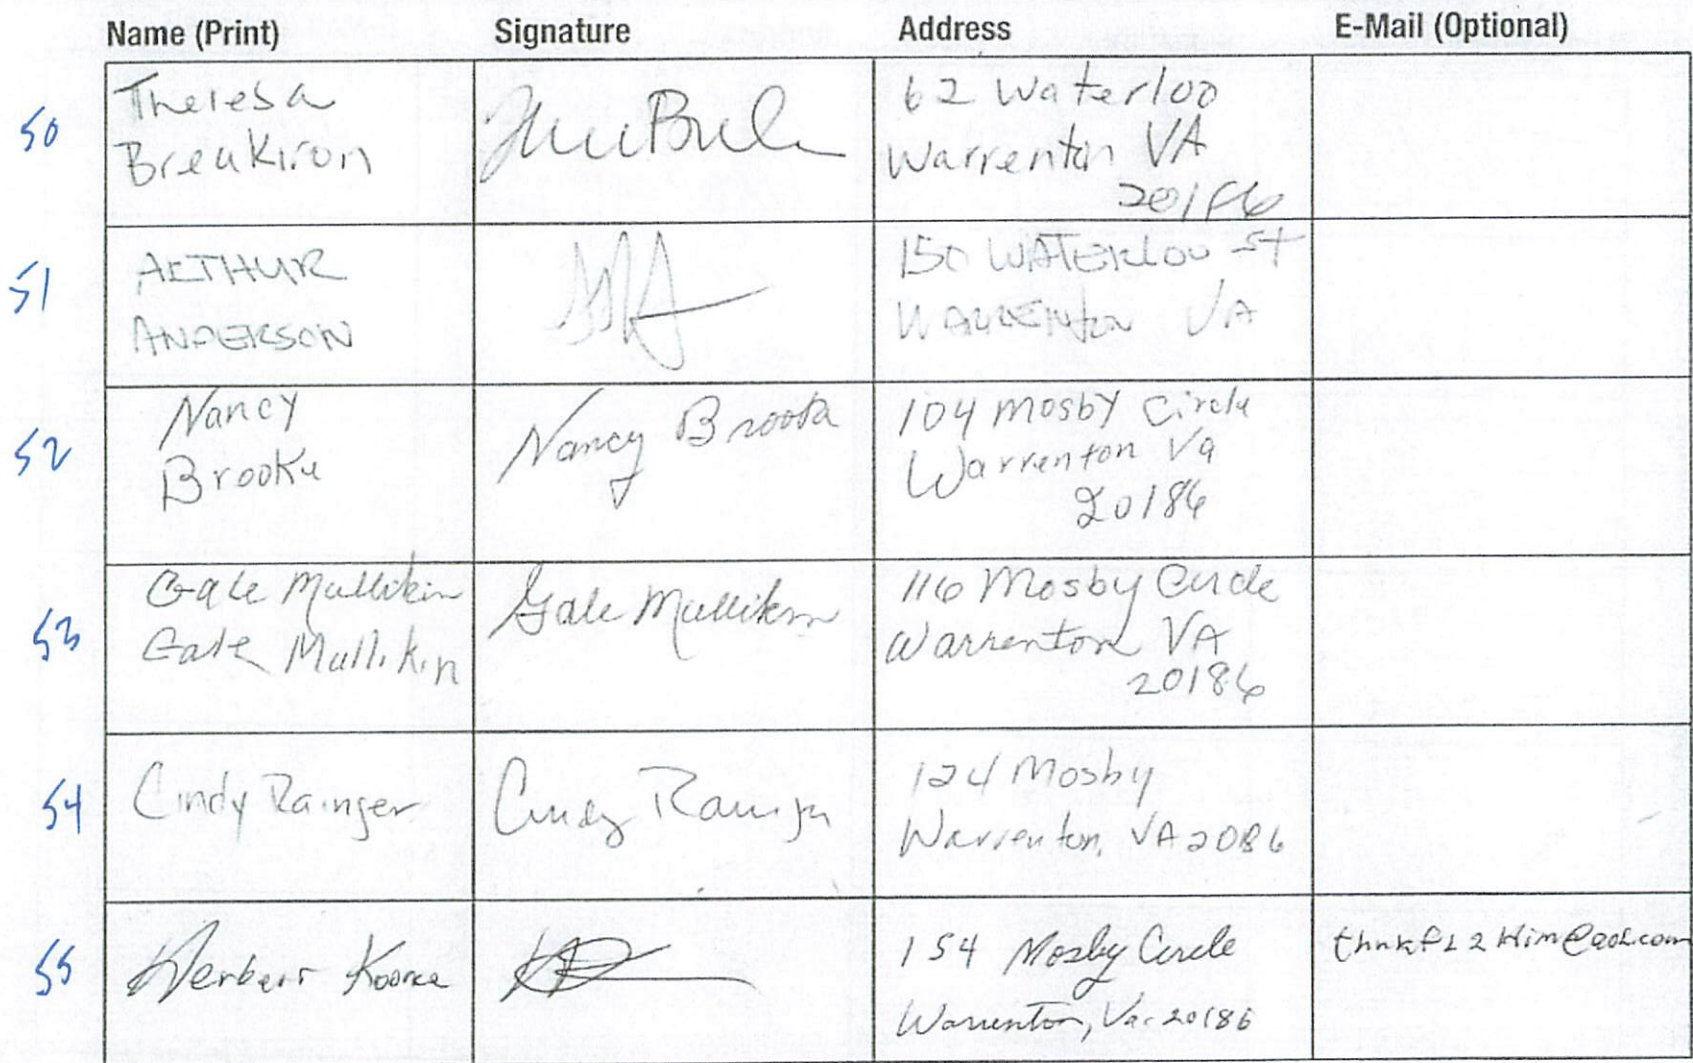 Name (Print) Signature Address E-Mail (Optional)
50
Theresa
Breakiron
62 Waterloo
Warrenton VA
20186
51
ARTHUR
ANDERSON
150 WATERLOO ST
WARRENTON VA
52
Nancy
Brooke
Nancy Brooke
104 Mosby Circle
Warrenton Va
20186
53
Gale Mullikin
Gale Mullikin
Gale Mullikin
116 Mosby Circle
Warrenton VA
20186
54
Cindy Rainger
Cindy Rainger
124 Mosby
Warrenton, VA 2086
55
Herbert
154 Mosby Circle
Warrenton, Va. 20186